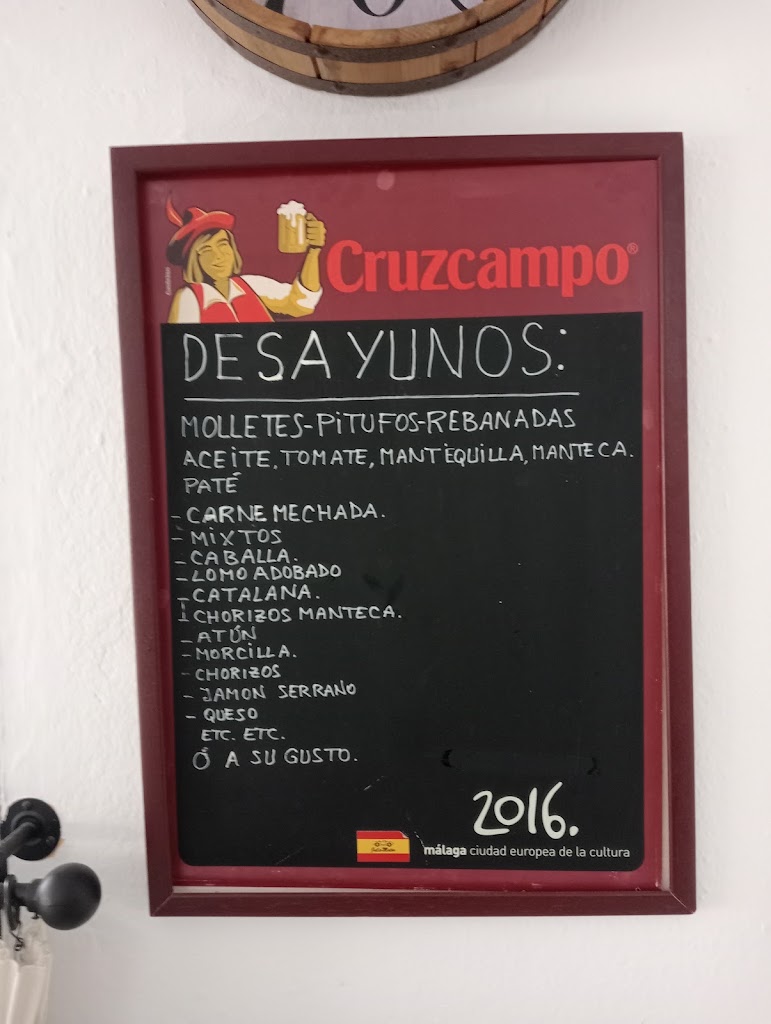 Cruzcampo®
DESAYUNOS:
MOLLETES-PiTUFOS-REBANADAS
ACEiTE, TOMATE, MANTEQUILLA, MANTECA.
PATÉ
- CARNE MECHADA.
- MiXTOS
- CABALLA.
- LOMO ADOBADO
- CATALANA.
- CHORIZOS MANTECA.
- ATÚN
- MORCILLA.
- CHORIZOS
- JAMON SERRANO
- QUESO
ETC. ETC.
Ó A SU GUSTO.
2016.
málaga ciudad europea de la cultura